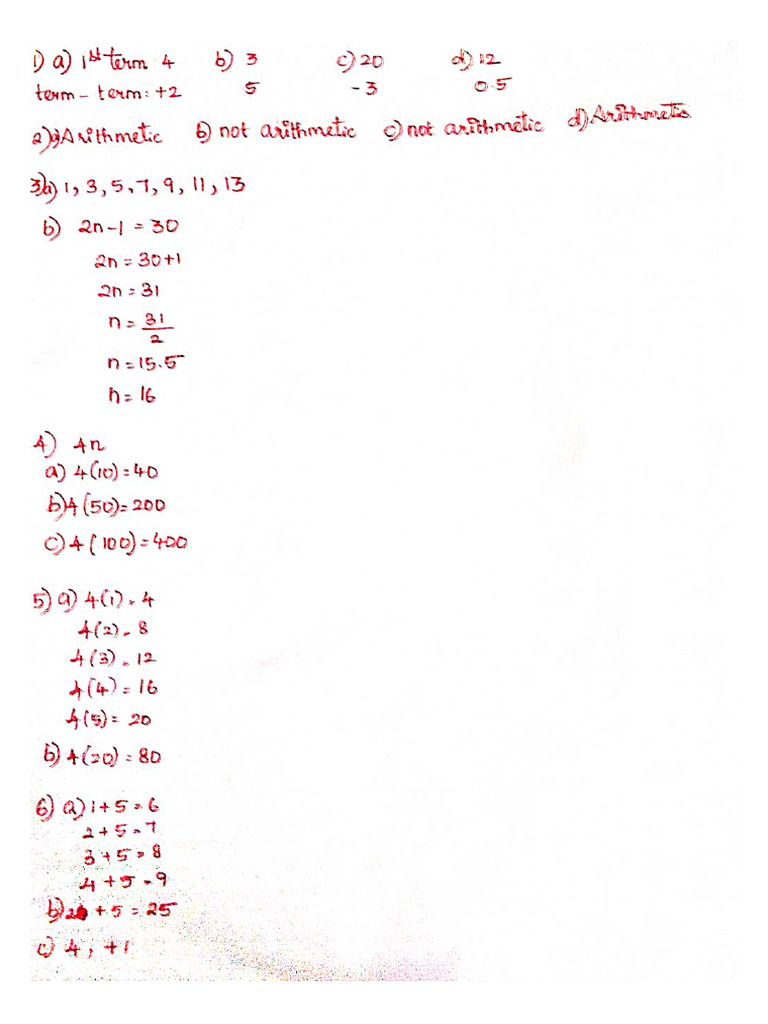 1) a) 1st term 4 b) 3 c) 20 d) 12
term - term: +2 5 -3 0.5
2) a) Arithmetic b) not arithmetic c) not arithmetic d) Arithmetic
3) a) 1, 3, 5, 7, 9, 11, 13
b) 2n-1 = 30
2n = 30+1
2n = 31
n = 31/2
n = 15.5
n = 16
4) 4n
a) 4(10) = 40
b) 4(50) = 200
c) 4(100) = 400
5) a) 4(1) = 4
4(2) = 8
4(3) = 12
4(4) = 16
4(5) = 20
b) 4(20) = 80
6) a) 1+5 = 6
2+5 = 7
3+5 = 8
4+5 = 9
b) 20+5 = 25
c) 4, +1